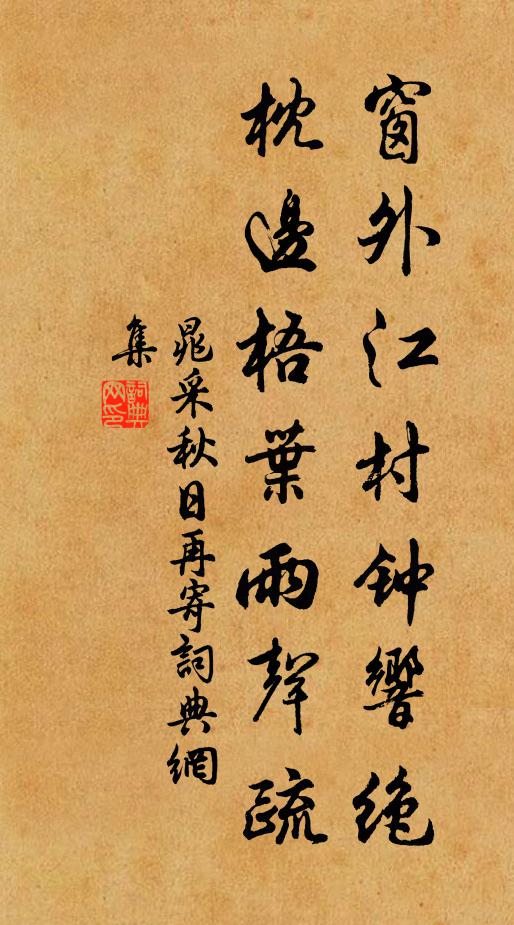 窗外江村钟響绝
枕邊梧葉雨聲疏
晁采秋日再寄詞典網
集
詞典
网印